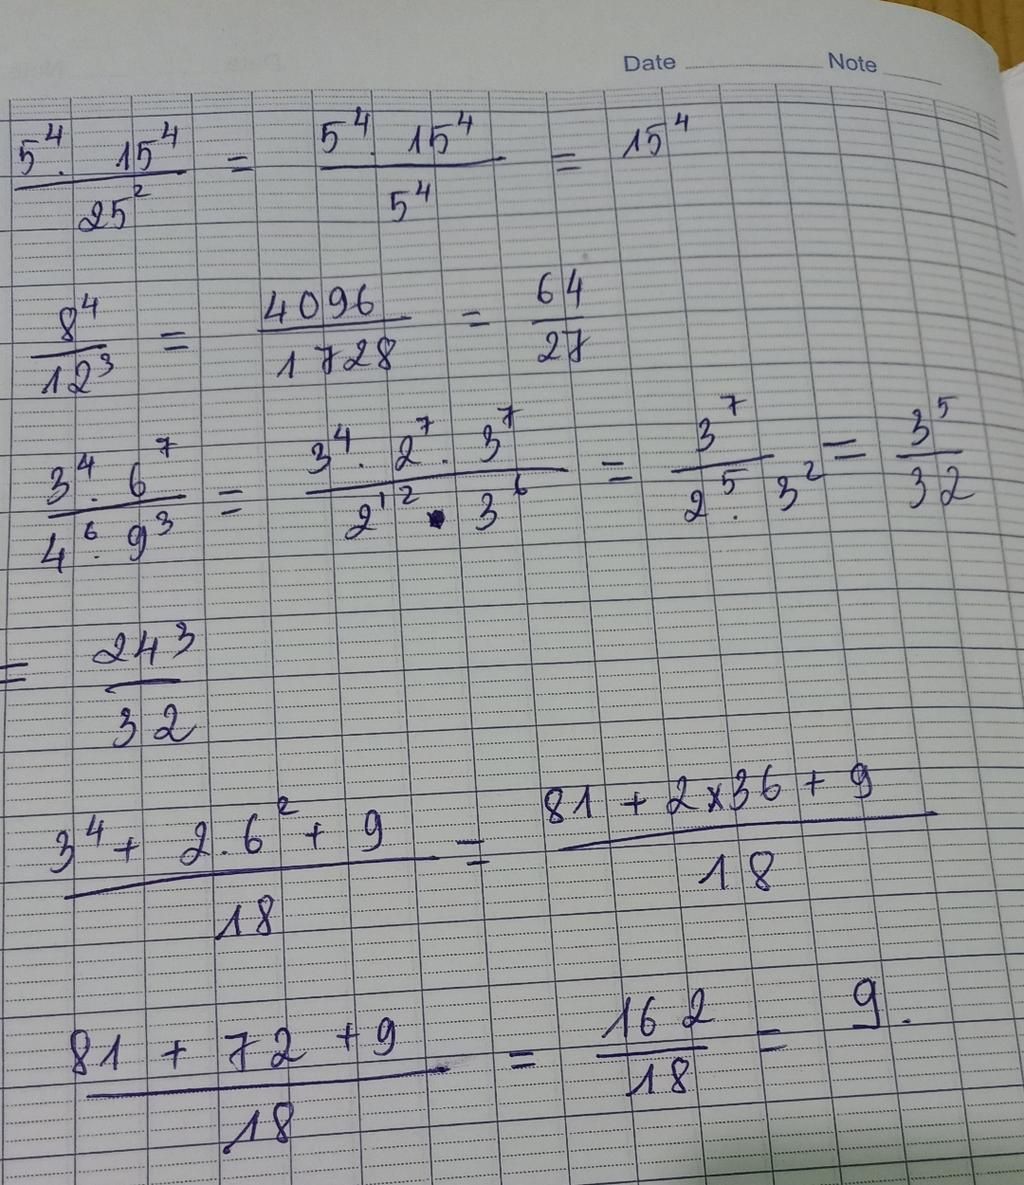 Date Note
5⁴. 15⁴ / 25² = 5⁴. 15⁴ / 5⁴ = 15⁴
8⁴ / 12³ = 4096 / 1728 = 64 / 27
3⁴. 6⁷ / 4⁶. 9³ = 3⁴. 2⁷. 3⁷ / 2¹² . 3⁶ = 3⁷ / 2⁵. 3² = 3⁵ / 32
= 243 / 32
3⁴ + 2.6² + 9 / 18 = 81 + 2×36 + 9 / 18
81 + 72 + 9 / 18 = 162 / 18 = 9.